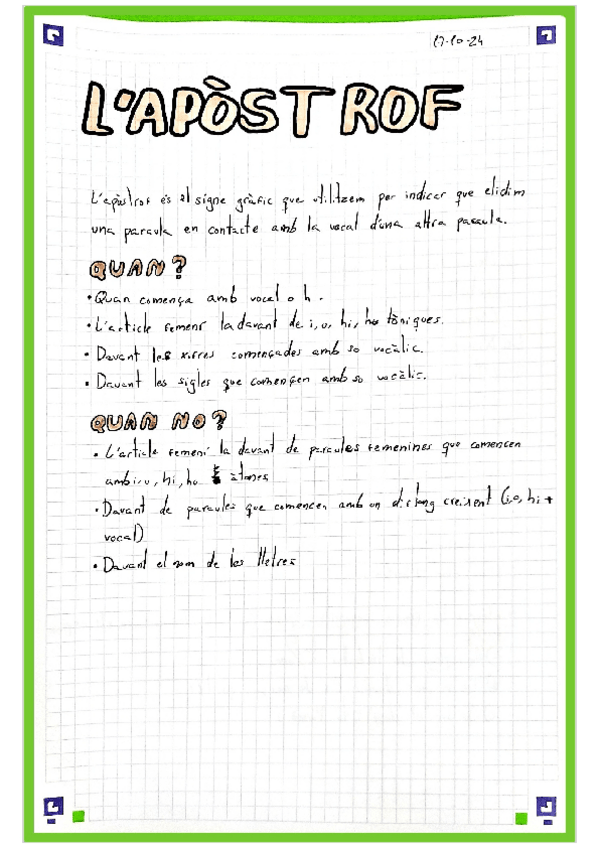 17-10-24
L'APÒSTROF
L'apòstrof és el signe gràfic que utilitzem per indicar que elidim
una paraula en contacte amb la vocal d'una altra paraula.
QUAN?
• Quan comença amb vocal o h.
• L'article femení la davant de i, u, hi, hu tòniques.
• Davant les xifres començades amb so vocàlic.
• Davant les sigles que comencen amb so vocàlic.
QUAN NO?
• L'article femení la davant de paraules femenines que comencen
amb i, u, hi, hu àtones
• Davant de paraules que comencen amb un diftong creixent (i, o, hi +
vocal)
• Davant el nom de les lletres